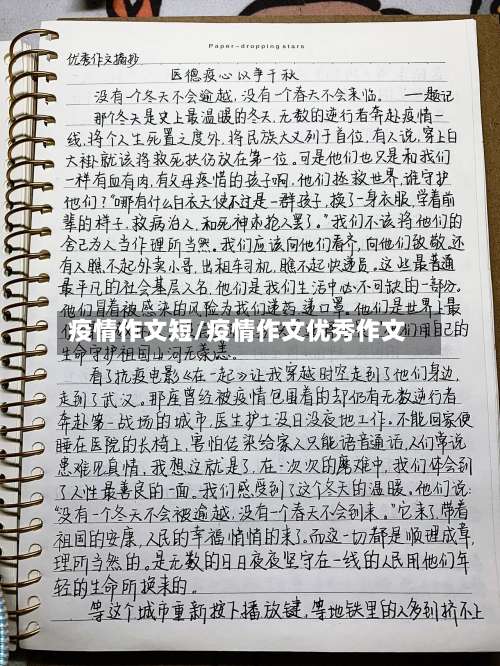 Paper-dropping stars
优秀作文摘抄
医德疫心以争千秋
没有一个冬天不会逾越,没有一个春天不会来临。——题记
那个冬天是史上最温暖的冬天,无数的逆行者奔赴疫情一
线,将个人生死置之度外,将民族大义列于首位,有人说,穿上白
大褂就该将救死扶伤放在第一位。可是他们也只是和我们
一样有血有肉,有父母疼惜的孩子啊,他们拯救世界,谁守护
他们?"哪有什么白衣天使不过是一群孩子,换了一身衣服,学着前
辈的样子,救病治人,和死神来抢人罢了。"我们不该将他们的
舍己为人当作理所当然。我们应该向他们看齐,向他们致敬,还
有人瞧不起外卖小哥,出租车司机,瞧不起快递员。这些最普通
最平凡的社会基层人名,他们是我们生活中必不可缺的一部分。
他们冒着被感染的风险为我们送药送口罩。他们是世界上最
疫情作文短/疫情作文优秀作文
们用自己的
生命守护祖国山河无恙。
看了抗疫电影《在一起》让我穿越时空走到了他们身边,
走到了武汉。那座曾经被疫情包围着的却仍有无数逆行者
奔赴第一战场的城市,医生护士没日没夜地工作。不能回家便
睡在医院的长椅上,害怕传染给家人只能语音通话,人们常说
患难见真情,我想这就是了,在一次次的磨难中,我们体会到
了人性最善良的一面。我们感受到了这个冬天的温暖。他们说:
"没有一个冬天不会被逾越,没有一个春天不会到来。"它来了,带着
祖国的安康,人民的幸福悄悄的来了。而这一切都是顺理成章,
理所当然的。是无数的日日夜夜坚守在一线的人民用他们年
轻的生命所换来的。
等这个城市重新按下播放键,等地铁里的人多到挤不上